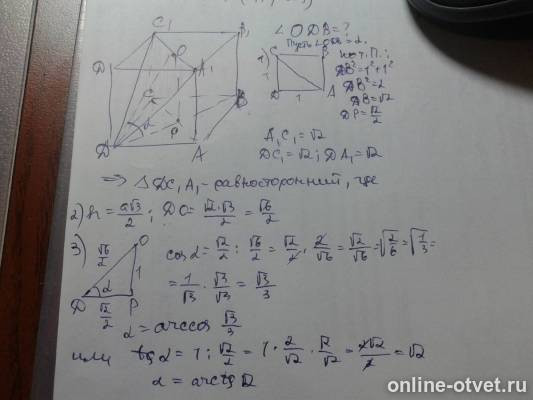 C₁ B₁
O
D₁ A₁
C B
α P
D A
∠ODB = ?
Пусть = α.
1) C B
1
D 1 A
По т. П.:
DB² = 1² + 1²
DB² = 2
DB = √2
DP = √2/2
A₁C₁ = √2
DC₁ = √2; DA₁ = √2
⟹ △DC₁A₁ - равносторонний, где
2) h = a√3/2; DO = √2·√3/2 = √6/2
3) O
√6/2 1
D α P
√2/2
cos α = √2/2 : √6/2 = √2/2 · 2/√6 = √2/√6 = √(2/6) = √(1/3) =
= 1/√3 · √3/√3 = √3/3
α = arccos √3/3
или tg α = 1 : √2/2 = 1 · 2/√2 · √2/√2 = 2√2/2 = √2
α = arctg √2
online-otvet.ru